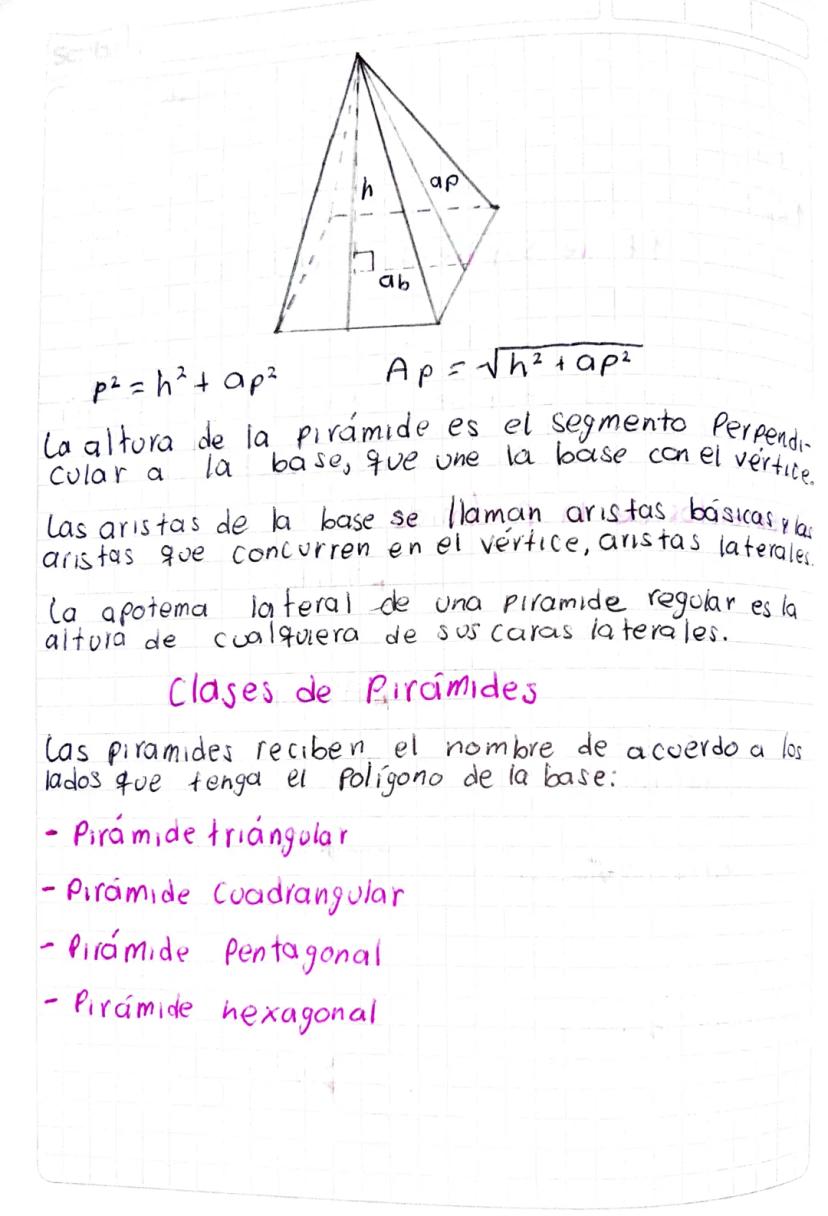 h
ap
ab
p² = h² + ap²
Ap = √h² + ap²
La altura de la pirámide es el segmento Perpendi-
cular a la base, que une la base con el vértice.
Las aristas de la base se llaman aristas básicas y las
aristas que concurren en el vértice, aristas laterales.
La apotema lateral de una piramide regular es la
altura de cualquiera de sus caras laterales.
Clases de Pirámides
Las piramides reciben el nombre de acuerdo a los
lados que tenga el Polígono de la base:
- Pirámide triángular
- Pirámide Cuadrangular
- Pirámide Pentagonal
- Pirámide hexagonal